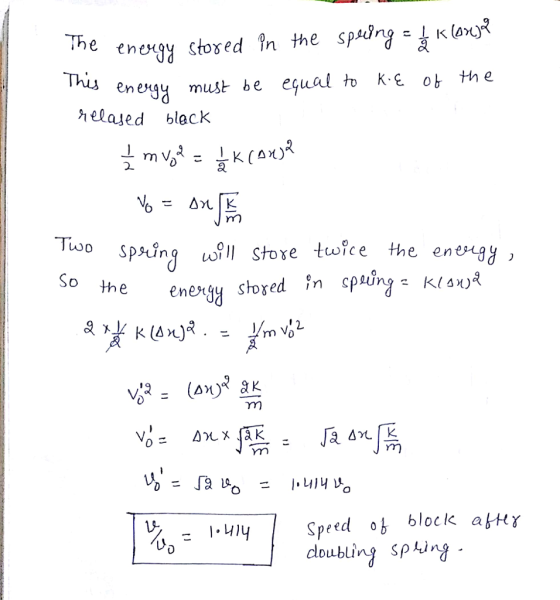 The energy stored in the spring = 1/2 K(Δx)²
This energy must be equal to K.E of the
relased block
1/2 m V₀² = 1/2 K(Δx)²
V₀ = Δx √(K/m)
Two spring will store twice the energy,
So the energy stored in spring = K(Δx)²
2 × 1/2 K(Δx)². = 1/2 m V₀'²
V₀'² = (Δx)² 2K/m
V₀' = Δx × √(2K/m) = √2 Δx √(K/m)
V₀' = √2 v₀ = 1.414 v₀
v/v₀ = 1.414 Speed of block after
doubling spring.